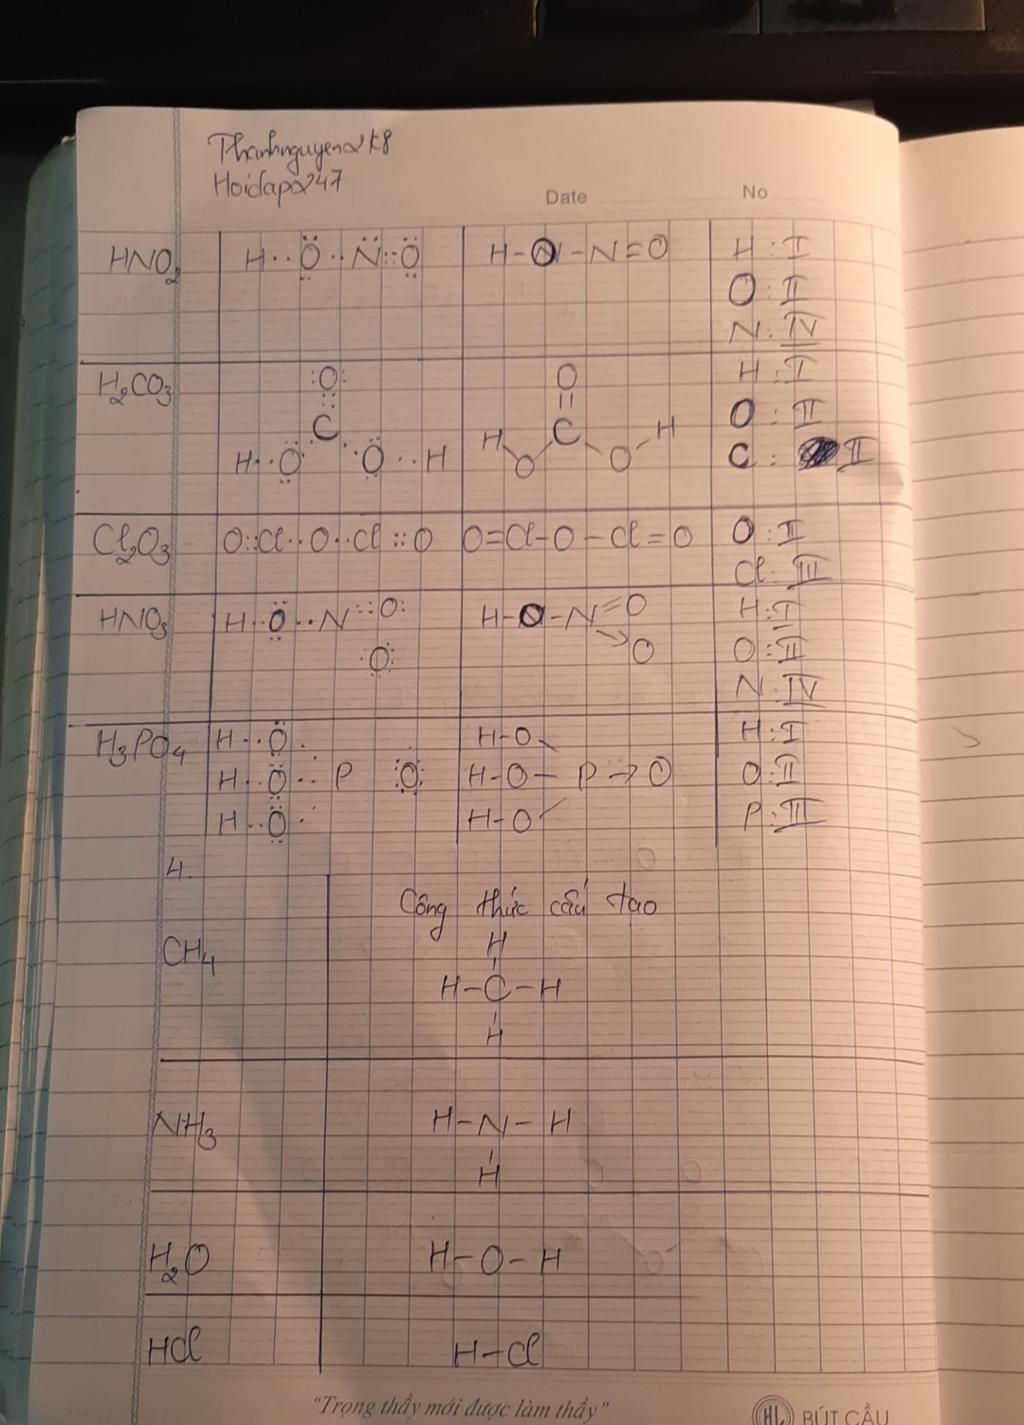 Thanhnguyen2k8
Hoidap247
Date No
HNO2 H··Ö··N̈::Ö H-O-N=O H: I
O: II
N: IV
H2CO3 O O H: I
C C O: II
H··Ö Ö··H H O O H C: II
Cl2O3 O::Cl··O··Cl::O O=Cl-O-Cl=O O: II
Cl: III
HNO3 H··Ö··N::O: H-O-N=O H: I
O O O: II
N: IV
H3PO4 H··Ö· H-O H: I
H··Ö·· P O H-O-P→O O: II
H··Ö· H-O P: III
4.
Công thức cấu tạo
CH4 H
H-C-H
H
NH3 H-N-H
H
H2O H-O-H
HCl H-Cl
"Trọng thầy mới được làm thầy" HL BÚT CẦU